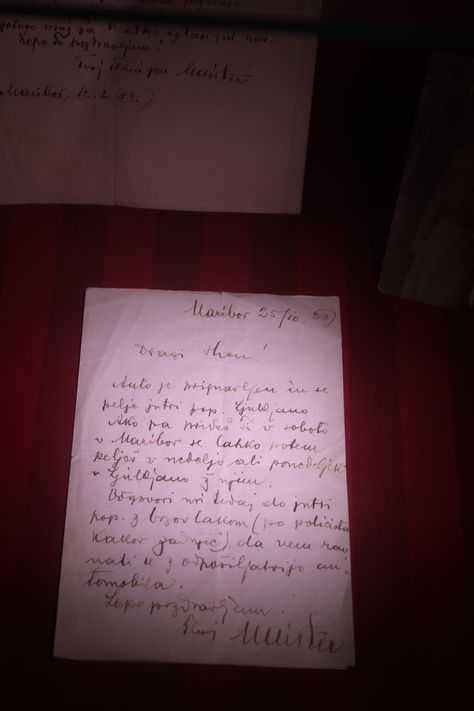 vsaj za kratko, oglasi pri nas.
Lepo Te pozdravljam!
Tvoj Maister
Maribor, 12. 2.
Maribor 25/10.
Dragi
Auto je pripravljen in se
pelje jutri pop. Ljubljano.
Ako pa prideš Ti v soboto
v Maribor se lahko potem
pelješ v nedeljo ali ponedeljek
v Ljubljano ž njim.
Odgovori mi tedaj do jutri
pop. z brzovlakom (po policistu
kakor zadnjič), da vem rav-
nati se z odpošiljatvijo av-
tomobila.
Lepo pozdravljam!
Tvoj Maister